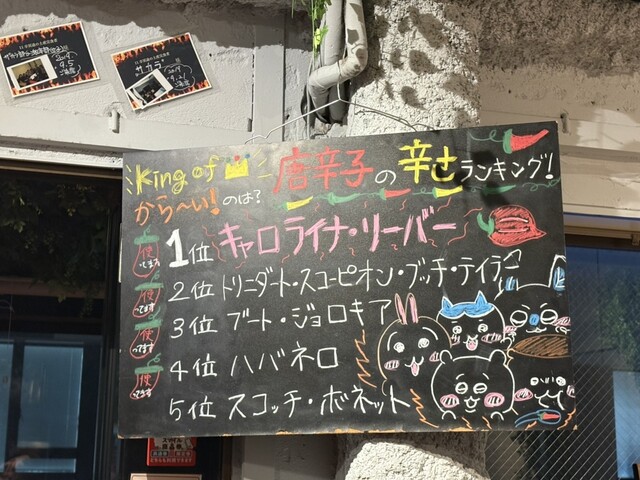 King of 唐辛子の辛さランキング!
から〜い!のは?
使ってます 1位 キャロライナ・リーパー
使ってます 2位 トリニダート・スコーピオン・ブッチ・テイラー
使ってます 3位 ブート・ジョロキア
使ってます 4位 ハバネロ
5位 スコッチ・ボネット